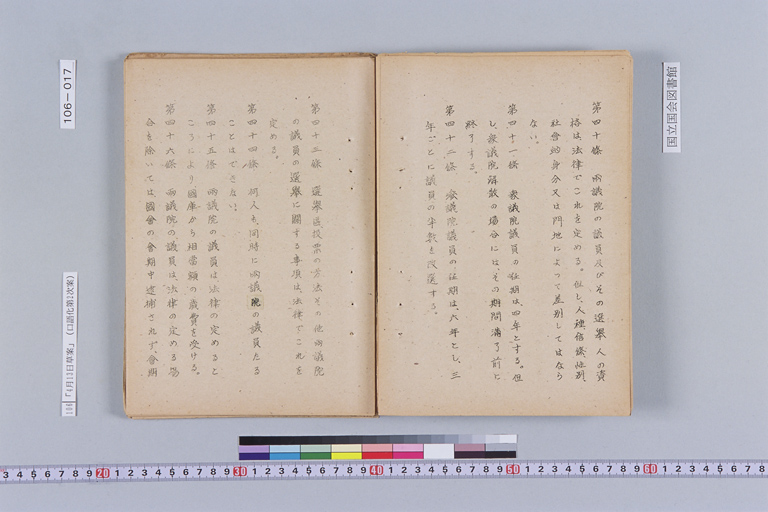 第四十條 兩議院の議員及びその選擧人の資
格は法律でこれを定める。但し、人種信條性別、
社會的身分又は門地によつて差別してはなら
ない。
第四十一條 衆議院議員の任期は、四年とする。但
し、衆議院解散の場合には、その期間滿了前に
終了する。
第四十二條 參議院議員の任期は、六年とし、三
年ごとに議員の半數を改選する。
第四十三條 選擧區、投票の方法その他兩議院
の議員の選擧に關する事項は、法律でこれを
定める。
第四十四條 何人も、同時に兩議院の議員たる
ことはできない。
第四十五條 兩議院の議員は法律の定めると
ころにより國庫から相當額の歳費を受ける。
第四十六條 兩議院の議員は、法律の定める場
合を除いては國會の會期中逮捕されず、會期
国立国会図書館
106-017
106「4月13日草案」（口語化第2次案）
3 4 5 6 7 8 9 20 1 2 3 4 5 6 7 8 9 30 1 2 3 4 5 6 7 8 9 40 1 2 3 4 5 6 7 8 9 50 1 2 3 4 5 6 7 8 9 60 1 2 3 4 5 6 7 8